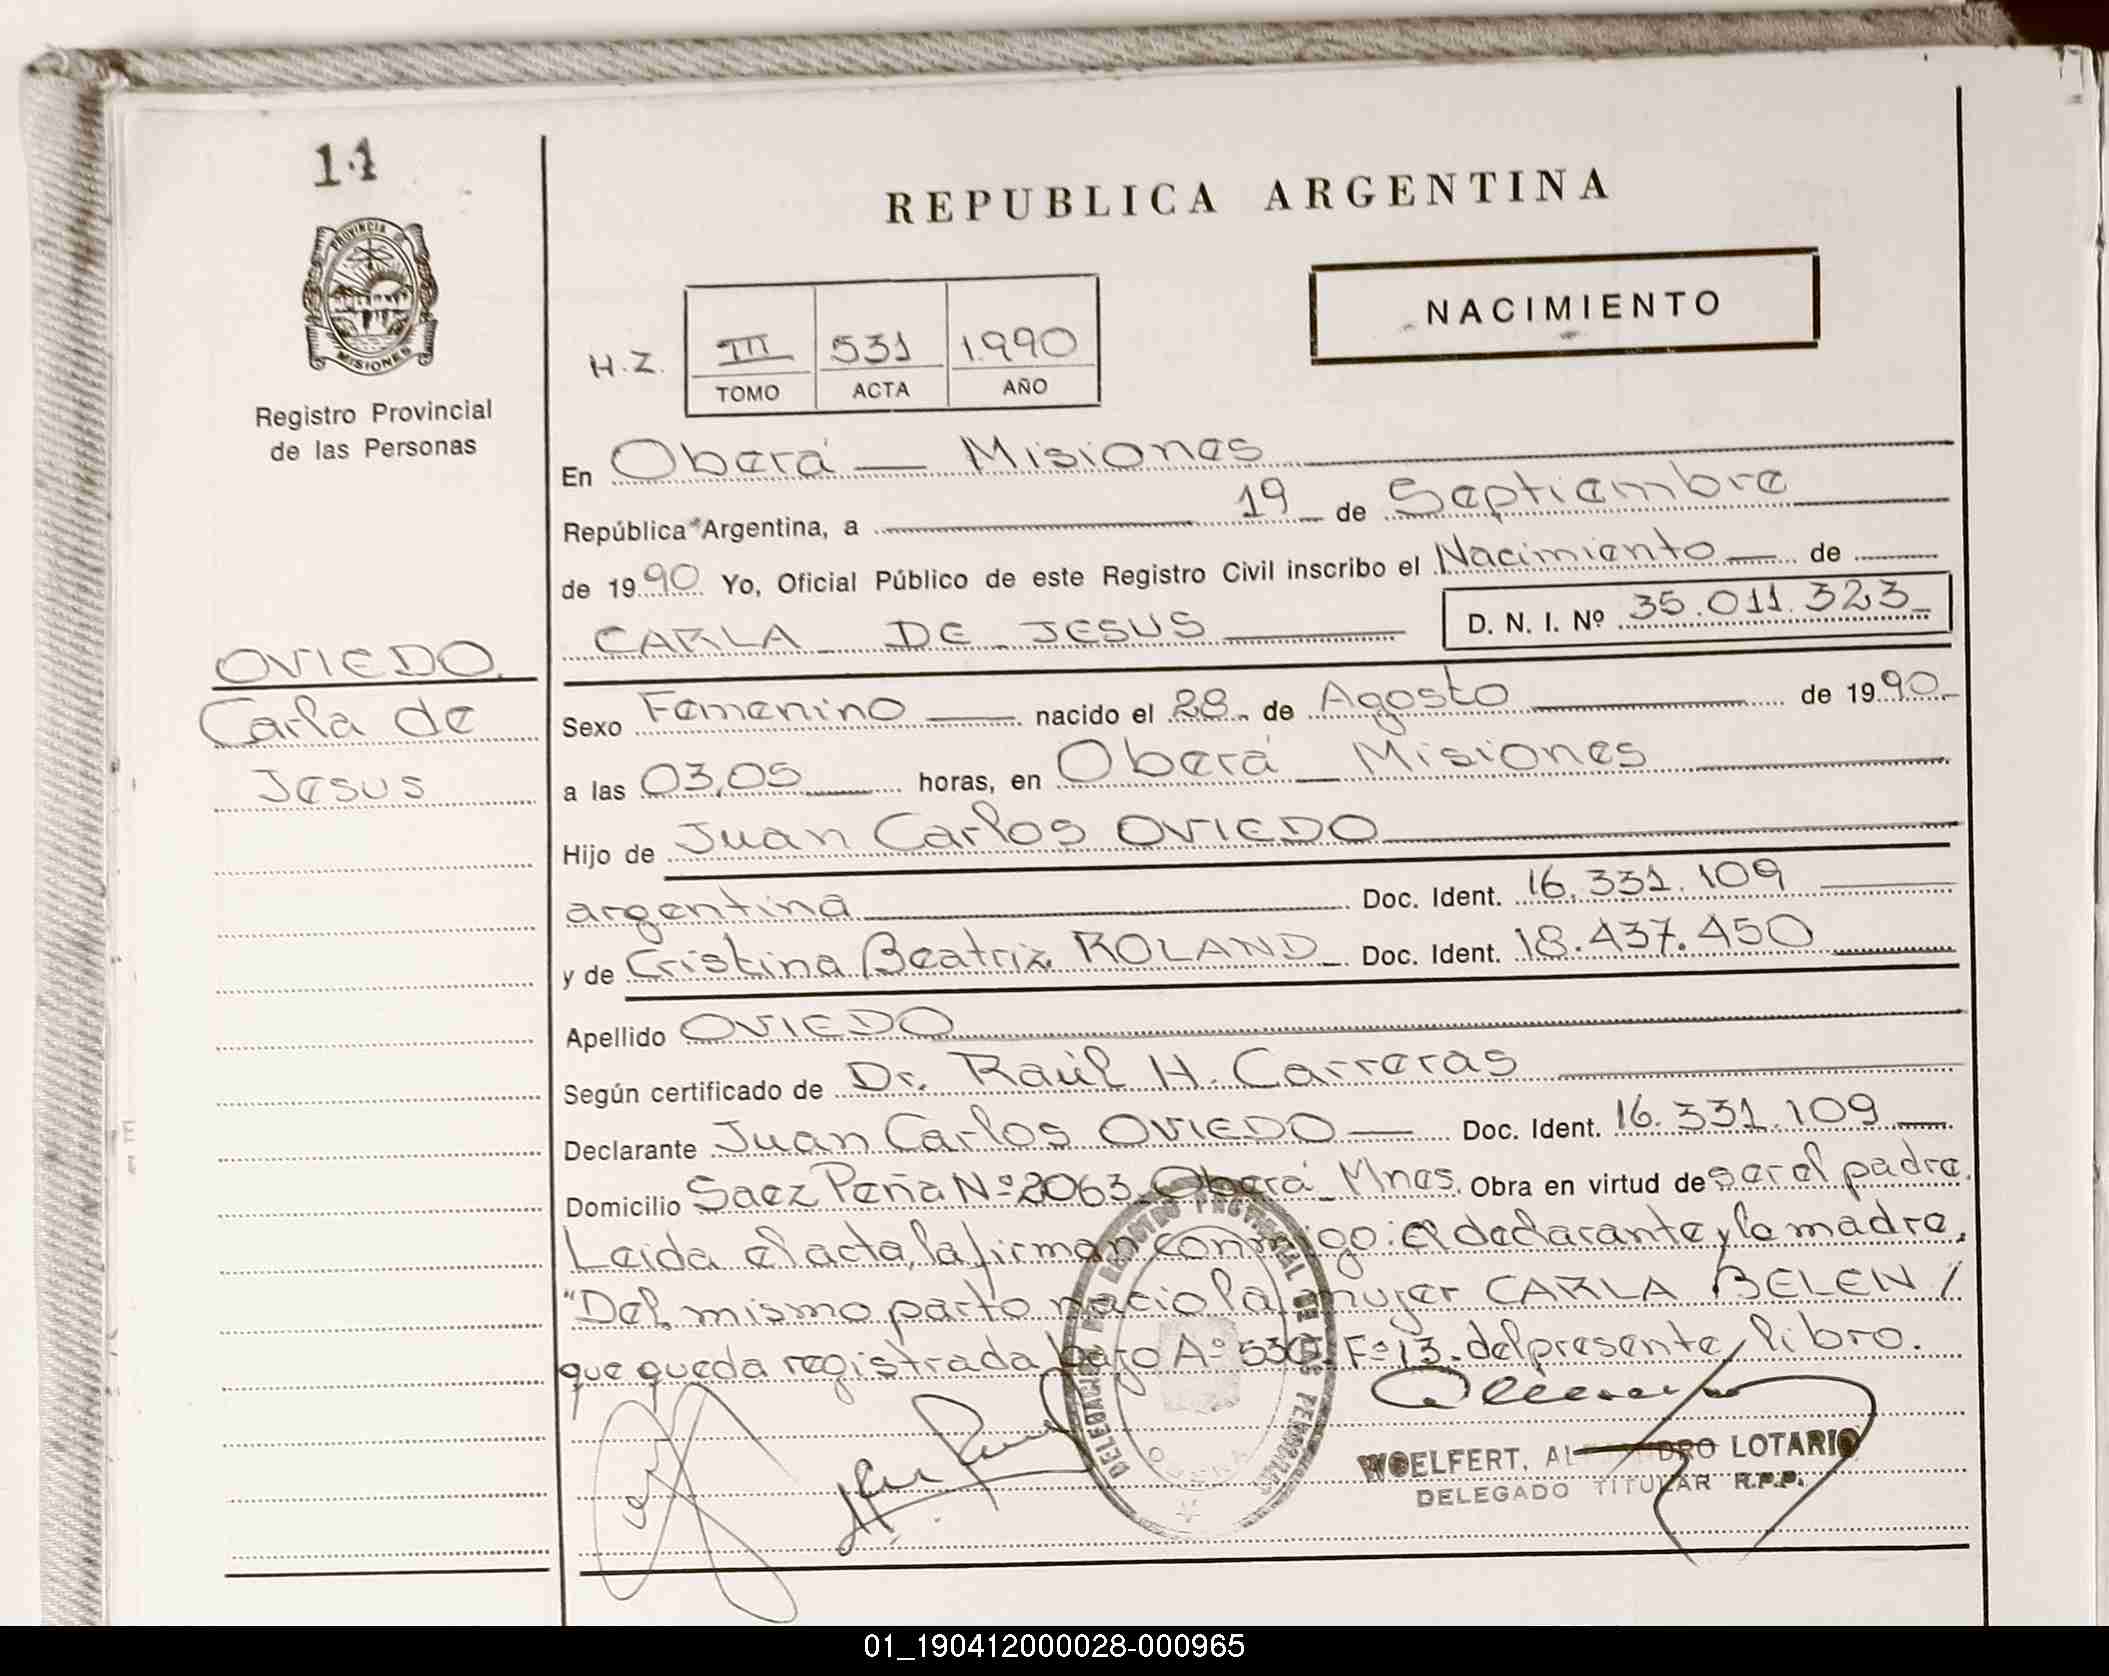 14
PROVINCIA DE
MISIONES
Registro Provincial
de las Personas
REPUBLICA ARGENTINA
NACIMIENTO
H.Z. III 531 1990
TOMO ACTA AÑO
En Oberá — Misiones
República Argentina, a 19 de Septiembre
de 1990 Yo, Oficial Público de este Registro Civil inscribo el Nacimiento de
CARLA DE JESUS D. N. I. Nº 35.011.323
OVIEDO
Carla de
Jesus
Sexo Femenino nacido el 28 de Agosto de 1990
a las 03,05 horas, en Oberá Misiones
Hijo de Juan Carlos OVIEDO
argentina Doc. Ident. 16.331.109
y de Cristina Beatriz ROLAND Doc. Ident. 18.437.450
Apellido OVIEDO
Según certificado de Dr. Raúl H. Carreras
Declarante Juan Carlos OVIEDO Doc. Ident. 16.331.109
Domicilio Saez Peña Nº 2063 Oberá Mnes. Obra en virtud de ser el padre.
Leida el acta, la firman conmigo: el declarante y la madre.
"Del mismo parto nacio la mujer CARLA BELEN /
que queda registrada bajo Aº 530 Fº 13 del presente libro.
DELEGACION DEL REGISTRO PROVINCIAL DE LAS PERSONAS
WOELFERT, AL DRO LOTARIO
DELEGADO TITULAR R.P.P.
01_190412000028-000965